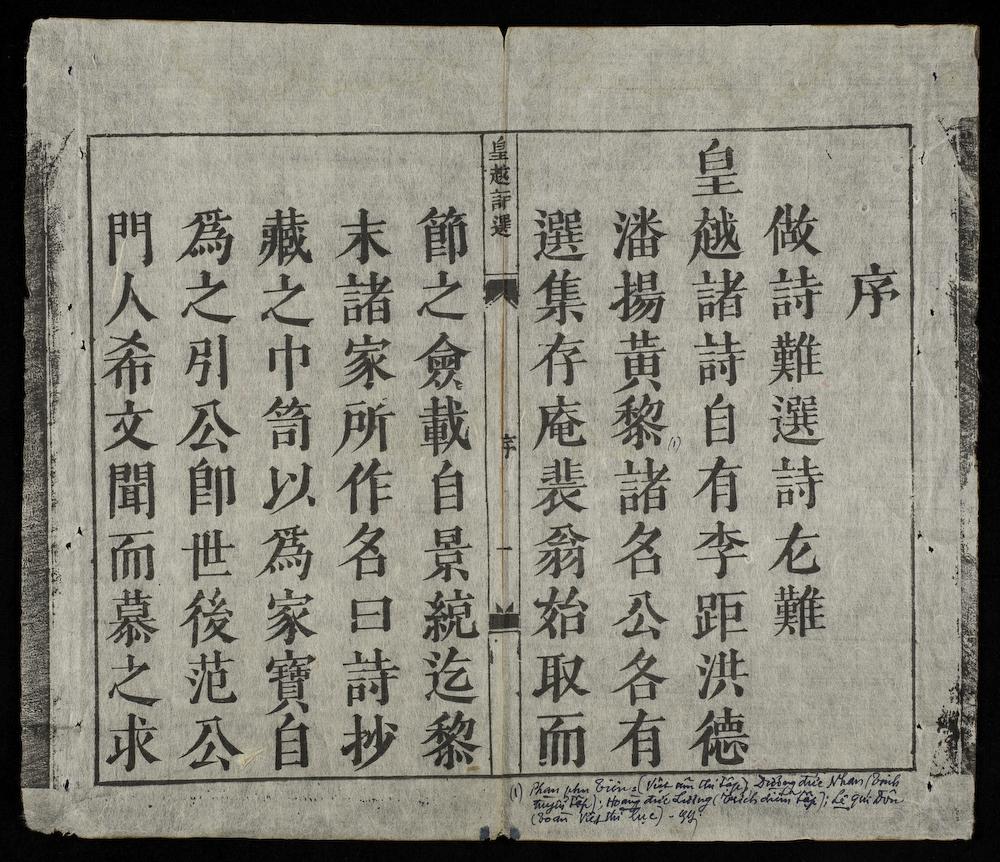 序
做詩難選詩尤難
皇越諸詩自有李距洪德
潘揚黃黎諸名公各有
選集存庵裴翁始取而
皇越詩選
序
一
節之僉載自景統迄黎
末諸家所作名曰詩抄
藏之巾笥以爲家寶自
爲之引公卽世後范公
門人希文聞而慕之求
(1)
(1) Phan phu Tiên (Việt âm thi tập) Dương đức Nhan (Tinh
tuyển tập); Hoàng đức Lương (Trích diễm tập); Lê quí Đôn
(Toàn Việt thi lục)